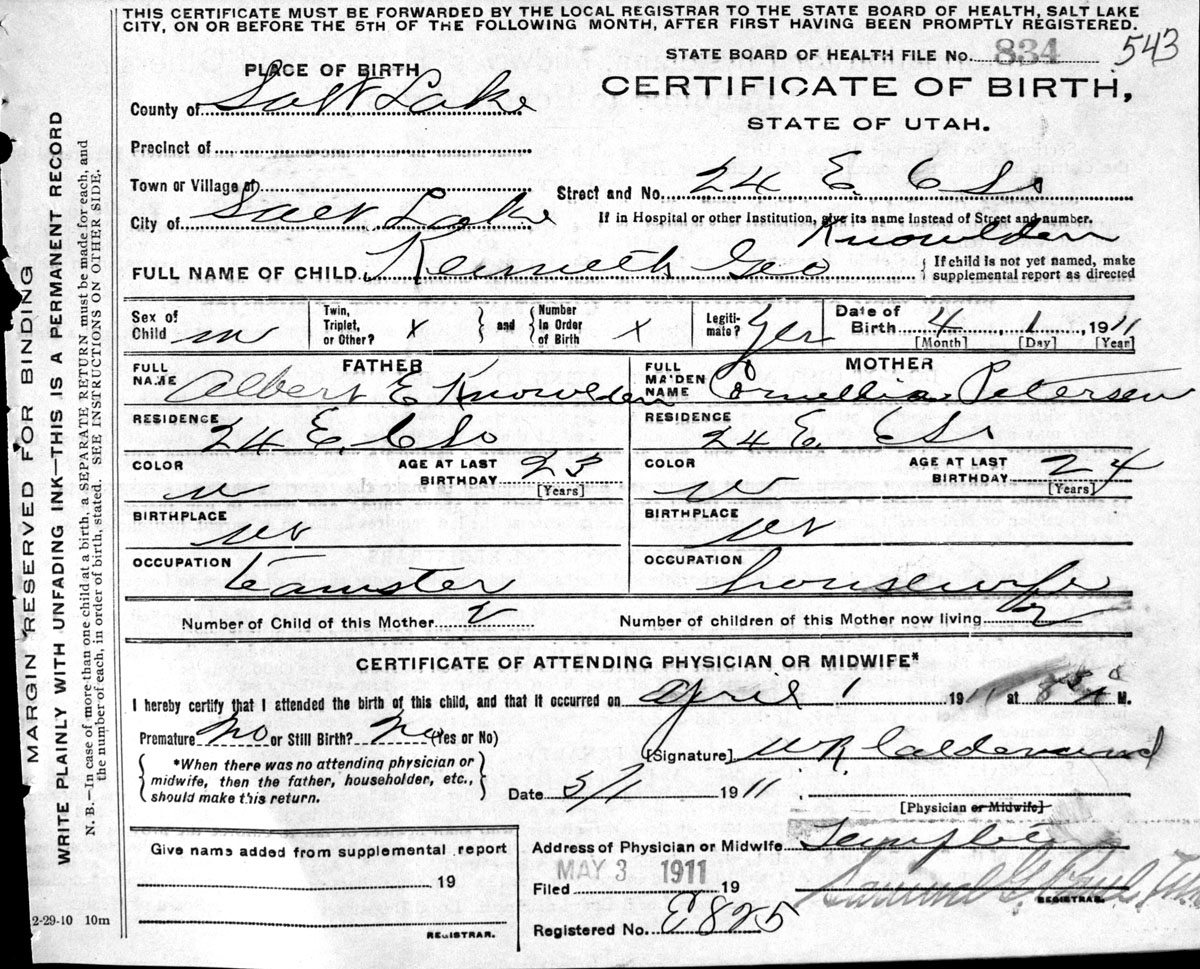 THIS CERTIFICATE MUST BE FORWARDED BY THE LOCAL REGISTRAR TO THE STATE BOARD OF HEALTH, SALT LAKE
CITY, ON OR BEFORE THE 5TH OF THE FOLLOWING MONTH, AFTER FIRST HAVING BEEN PROMPTLY REGISTERED.
543
STATE BOARD OF HEALTH FILE No. 834
PLACE OF BIRTH
CERTIFICATE OF BIRTH,
STATE OF UTAH.
County of Salt Lake
Precinct of
Town or Village of
Street and No. 24 E. 6 So
City of Salt Lake
If in Hospital or other Institution, give its name instead of Street and number.
FULL NAME OF CHILD Kenneth Geo Knowlden
If child is not yet named, make
supplemental report as directed
Sex of Child m
Twin, Triplet, or Other? x and Number in Order of Birth x
Legitimate? Yes
Date of Birth 4, 1, 1911
[Month] [Day] [Year]
FATHER
MOTHER
FULL NAME Albert E Knowlden
FULL MAIDEN NAME Cornellia Petersen
RESIDENCE 24 E. 6 So
RESIDENCE 24 E. 6 So
COLOR W AGE AT LAST BIRTHDAY 23 [Years]
COLOR W AGE AT LAST BIRTHDAY 24 [Years]
BIRTHPLACE Ut
BIRTHPLACE Ut
OCCUPATION teamster
OCCUPATION housewife
Number of Child of this Mother 2
Number of children of this Mother now living 2
CERTIFICATE OF ATTENDING PHYSICIAN OR MIDWIFE*
I hereby certify that I attended the birth of this child, and that it occurred on April 1 1911 at M.
Premature No or Still Birth? No (Yes or No)
*When there was no attending physician or
midwife, then the father, householder, etc.,
should make this return.
[Signature] W R Calderwood
Date 5/1 1911
[Physician or Midwife]
Give name added from supplemental report
19
REGISTRAR.
Address of Physician or Midwife
MAY 3 1911
Filed 19
REGISTRAR.
Registered No. E825
2-29-10 10m
MARGIN RESERVED FOR BINDING
WRITE PLAINLY WITH UNFADING INK—THIS IS A PERMANENT RECORD
N. B.—In case of more than one child at a birth, a SEPARATE RETURN must be made for each, and
the number of each, in order of birth, stated. SEE INSTRUCTIONS ON OTHER SIDE.